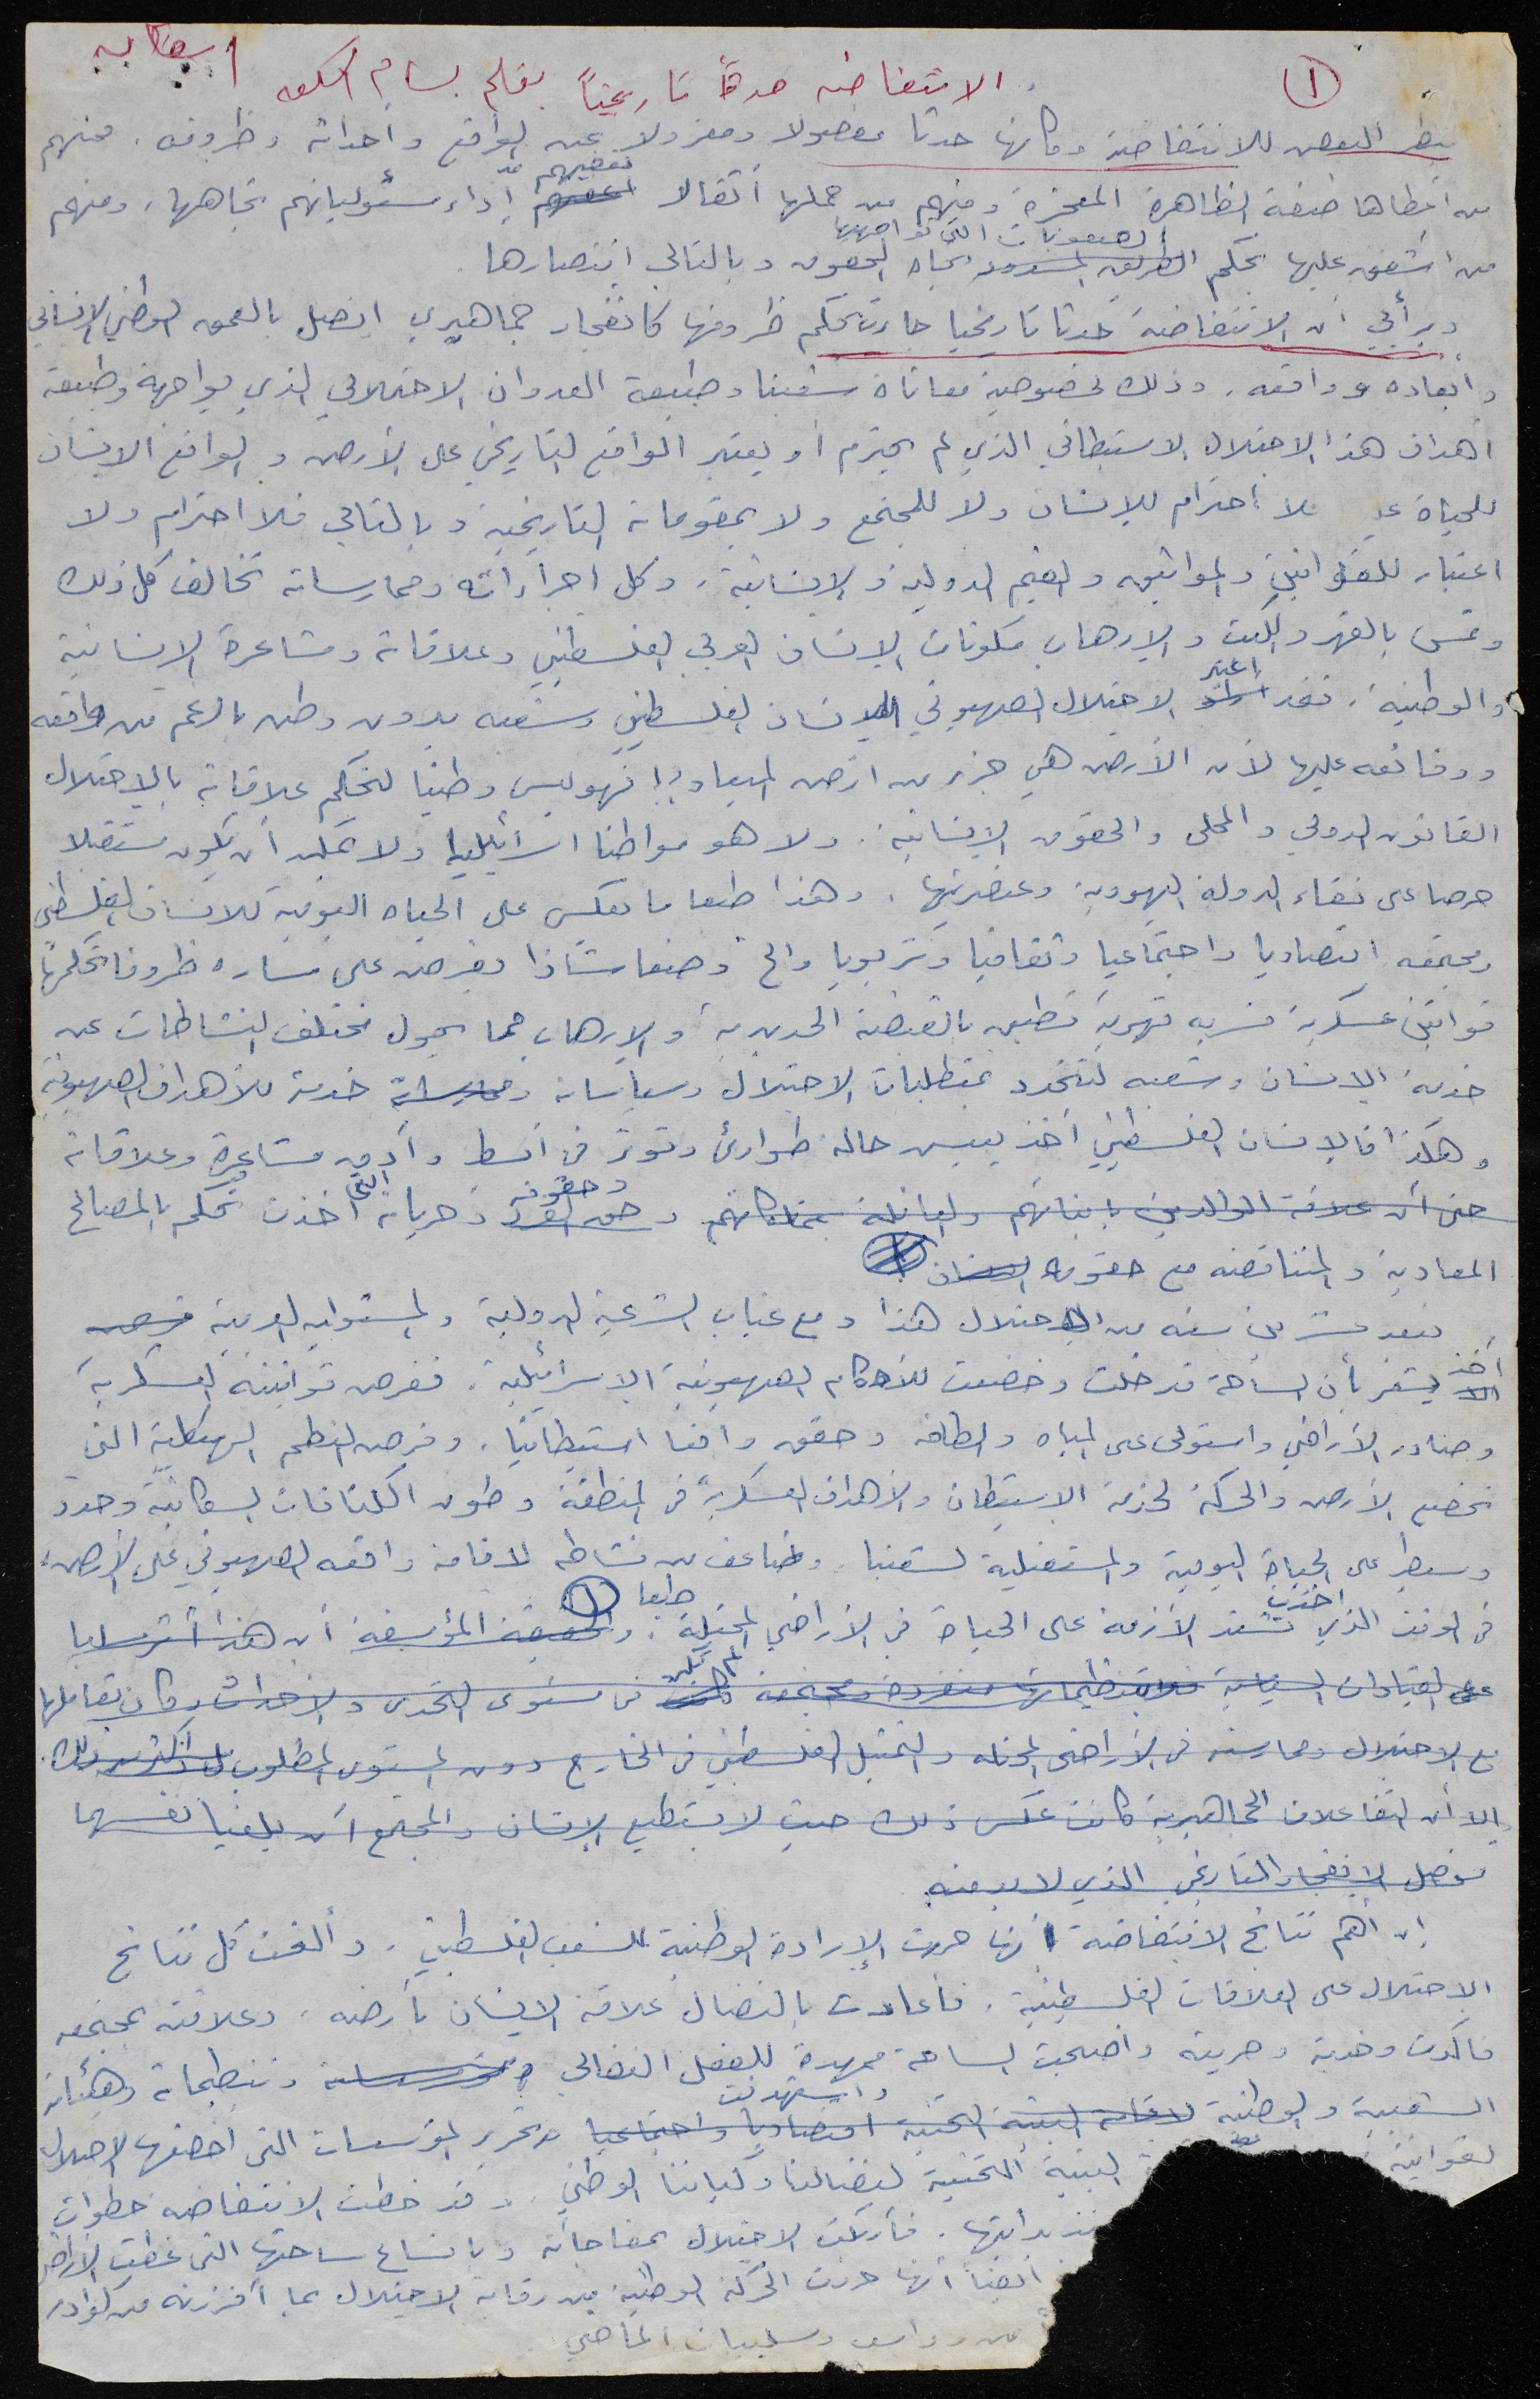 ١
الانتفاضه حدثاً تاريخياً بقلم بسام الشكعه
ينظر البعض للانتفاضة وكأنها حدثا مفصولا ومعزولا عن الواقع وأحداثه وظروفه. فمنهم
من اعطاها صفة الظاهرة المعجزة ومنهم من حملها أثقالا تعفيهم من إداء مسئولياتهم تجاهها، ومنهم
من اشفق عليها بحكم الصعوبات التي تواجهها تجاه الحقوق وبالتالي انتصارها.
وبرأيي أن الانتفاضة حدثا تاريخيا جاءت بحكم ظروفها كانفجار جماهيري اتصل بالعمق الوطني الإنساني
وأبعاده وواقعه. وذلك لخصوصية معاناة شعبنا وطبيعة العدوان الاحتلالي الذي يواجهه وطبيعة
أهداف هذا الاحتلال الاستيطاني الذي لم يحترم أو يعتبر الواقع التاريخي على الأرض والواقع الانساني
للحياة فلا احترام للإنسان ولا للمجتمع ولا بمقوماته التاريخية وبالتالي فلا احترام ولا
اعتبار للقوانين والمواثيق والقيم الدولية والإنسانية. وكل اجراءاته وممارساته تخالف كل ذلك
وتمس بالقهر والكبت والإرهاب مكونات الإنسان العربي الفلسطيني وعلاقاته ومشاعره الإنسانية
والوطنية. فقد اعتبر الاحتلال الصهيوني الإنسان الفلسطيني وشعبه بدون وطن بالرغم من واقعه
ووقائعه عليها لأن الأرض هي جزء من ارض الميعاد!! فهو ليس وطنيا لتحكم علاقاته بالاحتلال
القانون الدولي والمحلي والحقوق الإنسانية. ولا هو مواطنا اسرائيليا ولا يمكن أن يكون مستقبلا
حرصا على نقاء الدولة اليهودية وعنصريتها. وهذا طبعا ما يعكس على الحياه اليومية للانسان الفلسطيني
ومجتمعه اقتصاديا واجتماعيا وثقافيا وتربويا والخ وضعا شاذا يفرض على مساره ظروفا تحكمها
قوانين عسكرية قهرية تطبق بالقبضة الحديدية والإرهاب مما يحول مختلف النشاطات عن
خدمة الإنسان وشعبه لتتحدد بمتطلبات الاحتلال وسياساته وممارساته خدمة للأهداف الصهيونية
وهكذا فالإنسان الفلسطيني أخذ يعيش حالة طوارئ وتوتر في أبسط وأدق مشاعره وعلاقاته
حتى أن علاقة الوالدين بابنائهم والعائلة بممتلكاتهم وحقوقه وحرياته التي أخذت تحكم بالمصالح
المعادية والمتناقضه مع حقوقه
فبعد عشرين سنه من الاحتلال هذا ومع غياب الشرعية الدولية والمسئولية العربية
أخذ يشعر بأن الساحة قد خلت وخضعت للأحكام الصهيونية الاسرائيلية. ففرض قوانينه العسكرية
وصادر الأراضي واستولى على المياه والطاقه وحقق واقعا استيطانيا. وفرض النظم الهيكلية التي
تخضع الأرض والحركة لخدمة الاستيطان والأهداف العسكرية في المنطقة وطوق الكثافات السكانية وحدد
وسيطر على الحياة اليومية والمستقبلية لشعبنا. وضاعف من نشاطه لاقامة واقعه الصهيوني على الأرض،
في الوقت الذي أخذت تشتد الأزمة على الحياة في الأراضي المحتلة. طبعا ١ والحقيقة المؤسفة أن هذا أثر سلبيا
على القيادات السياسية فلا تنظيماتها منفردة ومجتمعه لم تكن في مستوى التحدي والأحداث وكان تعاملها
مع الاحتلال وممارسته في الأراضي المحتله والتمثيل الفلسطيني في الخارج دون المستوى المطلوب
إلا أن التفاعلات الجماهيرية كانت عكس ذلك حيث لا يستطيع الإنسان والمجتمع أن يلغيا نفسهما
فوصل الإنفجار التاريخي الذي لا بد منه.
إن أهم نتائج الانتفاضة انها حررت الإرادة الوطنية للشعب الفلسطيني. وألغت كل نتائج
الاحتلال على العلاقات الفلسطينية. فأعادت بالنضال علاقة الإنسان بأرضه، وعلاقته بمجتمعه
فاكدت وحدته وحريته واصبحت الساحة ممهدة للفعل النضالي وتنظيماته وهيئاته
الشعبية والوطنية لاقامة البنية التحتية اقتصاديا واجتماعيا واستهدفت تحرير المؤسسات التي أخضعها الاحتلال
لقوانينه البنية التحتية لنضالنا وكياننا الوطني. وقد خطت الانتفاضه خطوات
منذ بدايتها. فأربكت الاحتلال بمفاجأته وباتساع ساحتها التي غطت الأراضي
أيضاً أنها حررت الحركة الوطنية من رقابة الاحتلال بما أفرزته من كوادر
من رواسب وسلبيات الماضي